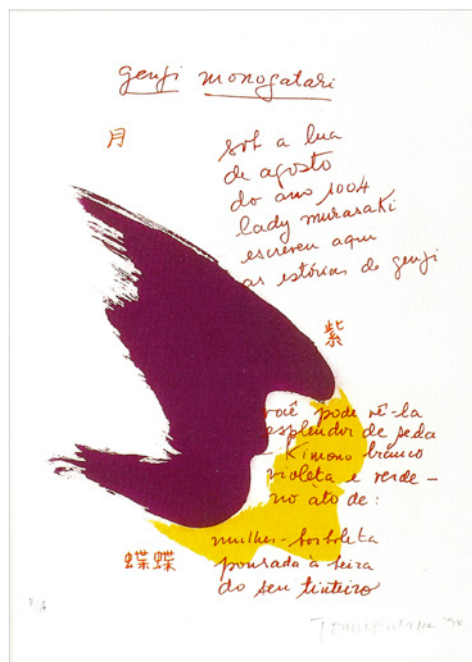 genji monogatari
月
sob a lua
de agosto
do ano 1004
lady murasaki
escreveu aqui
as estórias de genji
紫
você pode vê-la
esplendor de seda
kimono branco
violeta e verde –
no ato de:
mulher-borboleta
pousada à beira
do seu tinteiro
蝶蝶
P/A